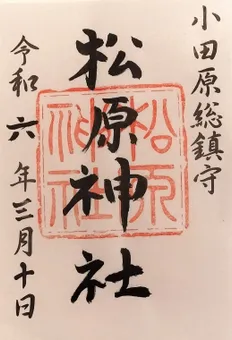 小田原総鎮守
松原神社
令和六年三月十日
松原
神社